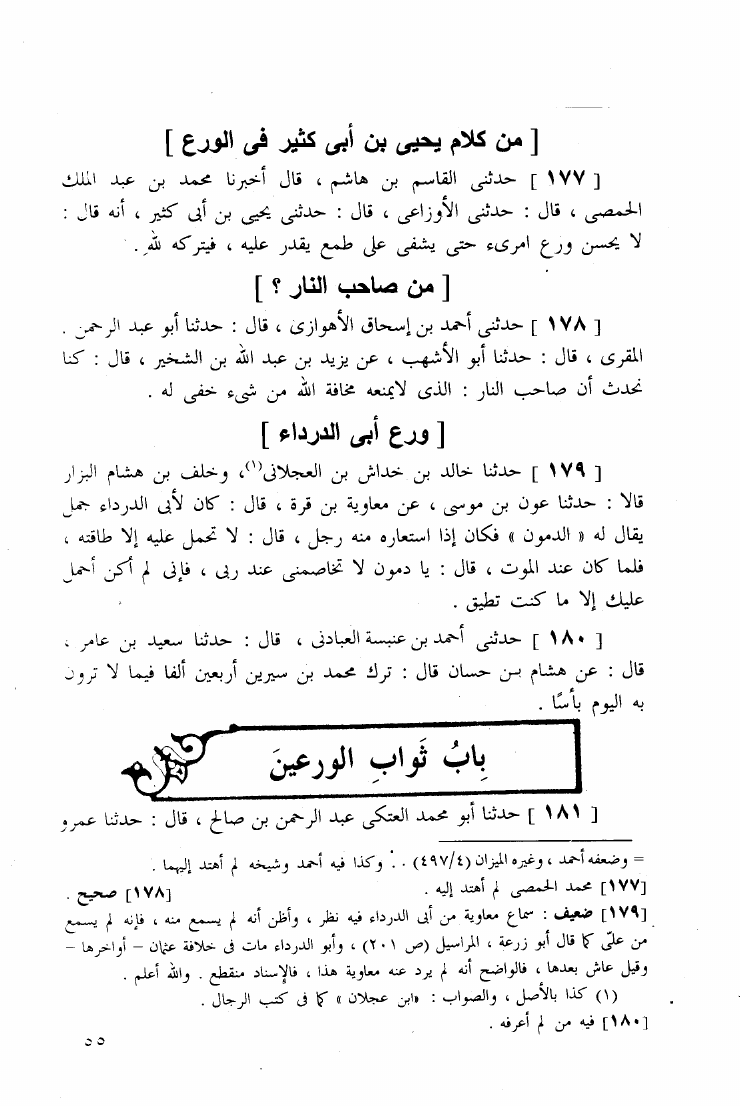 [ من كلام يحيى بن أبى كثير فى الورع ]
[ ١٧٧ ] حدثنى القاسم بن هاشم ، قال أخبرنا محمد بن عبد الملك
الحمصى ، قال : حدثنى الأوزاعى ، قال : حدثنى يحيى بن أبى كثير ، أنه قال :
لا يحسن ورع امرىء حتى يشفى على طمع يقدر عليه ، فيتركه لله .
[ من صاحب النار ؟ ]
[ ١٧٨ ] حدثنى أحمد بن إسحاق الأهوازى ، قال : حدثنا أبو عبد الرحمن .
المقرى ، قال : حدثنا أبو الأشهب ، عن يزيد بن عبد الله بن الشخير ، قال : كنا
نحدث أن صاحب النار : الذى لايمنعه مخافة الله من شىء خفى له .
[ ورع أبى الدرداء ]
[ ١٧٩ ] حدثنا خالد بن خداش بن العجلانى(١)، وخلف بن هشام البزار
قالا : حدثنا عون بن موسى ، عن معاوية بن قرة ، قال : كان لأبى الدرداء جمل
يقال له « الدمون » فكان إذا استعاره منه رجل ، قال : لا تحمل عليه إلا طاقته ،
فلما كان عند الموت ، قال : يا دمون لا تخاصمنى عند ربى ، فإنى لم أكن أحمل
عليك إلا ما كنت تطيق .
[ ١٨٠ ] حدثنى أحمد بن عنبسة العبادنى ، قال : حدثنا سعيد بن عامر ،
قال : عن هشام بـن حسان قال : ترك محمد بن سيرين أربعين ألفا فيما لا ترون
به اليوم بأسًا .
بابُ ثَوابِ الورعينَ
[ ١٨١ ] حدثنا أبو محمد العتكى عبد الرحمن بن صالح ، قال : حدثنا عمرو
= وضعفه أحمد ، وغيره الميزان (٤٩٧/٤) . . وكذا فيه أحمد وشيخه لم أهتد إليهما .
[١٧٧] محمد الحمصى لم أهتد إليه . [١٧٨] صحيح .
[١٧٩] ضعيف : سماع معاوية من أبى الدرداء فيه نظر ، وأظن أنه لم يسمع منه ، فإنه لم يسمع
من علىّ كما قال أبو زرعة ، المراسيل (ص ٢٠١) ، وأبو الدرداء مات فى خلافة عثمان – أواخرها –
وقيل عاش بعدها ، فالواضح أنه لم يرد عنه معاوية هذا ، فالإسناد منقطع . والله أعلم .
(١) كذا بالأصل ، والصواب : «ابن عجلان» كما فى كتب الرجال .
[١٨٠] فيه من لم أعرفه .
٥٥